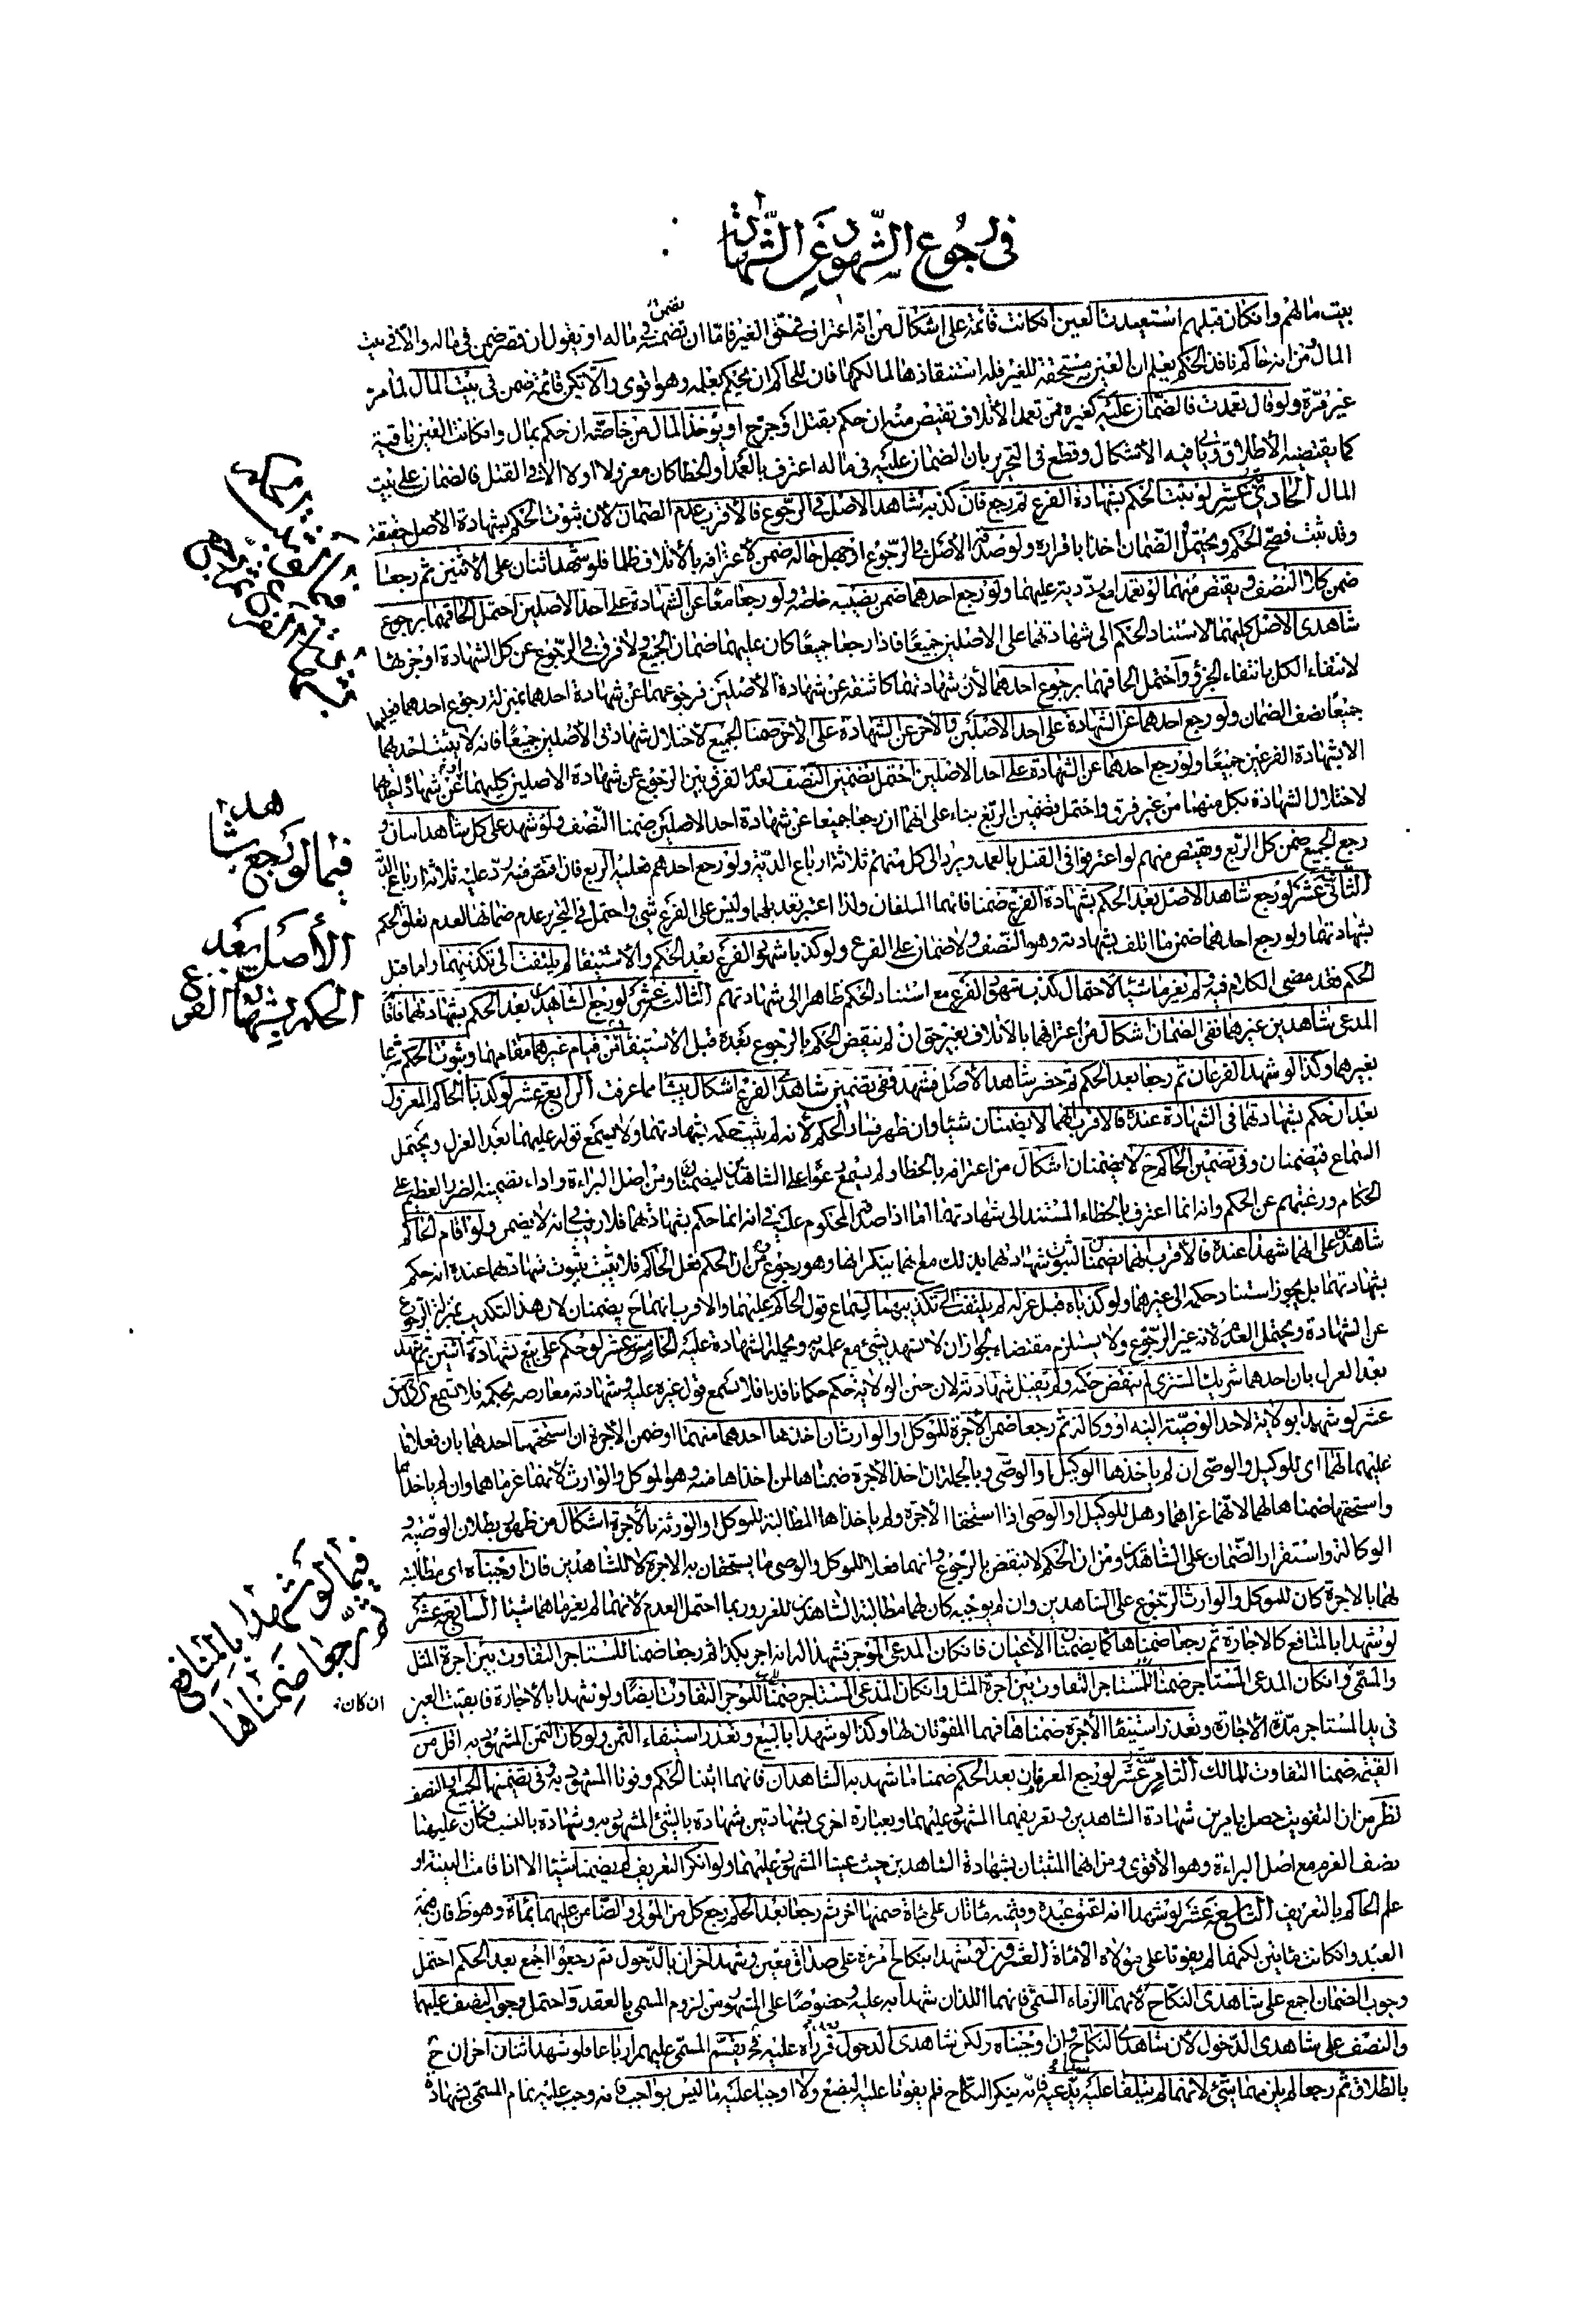 في رجوع الشهود عن الشهادة
بيت مالهم وان كان قبلهم استعيدت العين ان كانت قائمة على اشكال من انه اعتراف في حق الغير فاما ان تضمنه في ماله او يقول ان قصر ضمن في ماله والا في بيت
المال من انه حاكم نافذ الحكم يعلم ان العين مستحقة للغير فله استنقاذها لمالكها فان للحاكم ان يحكم بعلمه وهو اقوى والا تكن قائمة ضمن في بيت المال لما مر
غير مرة ولو قال تعمدت فالضمان عليه كغيره ممن تعمد الاتلاف تقتص منه ان حكم بقتل او جرح او يؤخذ المال من خاصته ان حكم بمال وان كانت العين باقية
كما يقتضيه الاطلاق وفيه الاشكال وقطع في التحرير بان الضمان عليه في ماله اعترف بالعمد او الخطا كان معزولا اولا الا في القتل فالضمان على بيت
المال الحادي عشر لو ثبت الحكم بشهادة الفرع ثم رجع فان كذبه شاهد الاصل في الرجوع فالاقرب عدم الضمان لان ثبوت الحكم بشهادة الاصل حقيقة
وقد ثبت فصح الحكم ويحتمل الضمان اخذا باقراره ولو صدقه الاصل في الرجوع او جهل حاله ضمن لاعترافه بالاتلاف ظلما فلو شهد اثنان على الاثنين ثم رجعا
ضمن كل النصف ويقتص منهما لو تعمدا مع رد دية عليهما ولو رجع احدهما ضمن نصيبه خاصة ولو رجعا معا عن الشهادة على احد الاصلين احتمل الحاقهما برجوع
شاهدي الاصل كليهما لاستناد الحكم الى شهادتهما على الاصلين جميعا فاذا رجعا جميعا كان عليهما ضمان الجميع ولا فرق في الرجوع عن كل الشهادة او جزئها
لانتفاء الكل بانتفاء الجزء واحتمل الحاقهما برجوع احدهما لان شهادتهما كاشفة عن شهادة الاصلين فرجوعهما عن شهادة احدهما بمنزلة رجوع احدهما فعليهما
جميعا نصف الضمان ولو رجع احدهما عن الشهادة على احد الاصلين والآخر عن الشهادة على الآخر ضمنا الجميع لاختلال شهادتي الاصلين جميعا فانه لا يثبت احدهما
الا بشهادة الفرعين جميعا ولو رجع احدهما عن الشهادة على احد الاصلين احتمل تضمين النصف لعدم الفرق بين الرجوع عن شهادة الاصلين كليهما او عن شهادة احدهما
لاختلال الشهادة بكل منهما من غير فرق واحتمل تضمين الربع بناء على انهما ان رجعا جميعا عن شهادة احد الاصلين ضمنا النصف ولو شهد على كل شاهد اثنان و
رجع الجميع ضمن كل الربع ويقتص منهم لو اعترفوا في القتل بالعمد ويرد الى كل منهم ثلاثة ارباع الدية ولو رجع احدهم فعليه الربع فان اقتص منه رد عليه ثلاثة ارباع الدية
الثاني عشر لو رجع شاهد الاصل بعد الحكم بشهادة الفرع ضمنا فانهما المتلفان ولذا اعتبر تعديلهما وليس على الفرع شئ واحتمل في التحرير عدم ضمانهما لعدم تعلق الحكم
بشهادتهما ولو رجع احدهما ضمن ما اتلف بشهادته وهو النصف ولا ضمان على الفرع ولو كذبا شهود الفرع بعد الحكم والاستيفاء لم يلتفت الى تكذيبهما واما قبل
الحكم فقد مضى الكلام فيه ولم يغرما شيئا لاحتمال كذب شهود الفرع مع استناد الحكم ظاهرا الى شهادتهم الثالث عشر لو رجع الشاهدان بعد الحكم بشهادتهما فاقام
المدعي شاهدين غيرهما ففي الضمان اشكال من اعترافهما بالاتلاف بغير حق ان لم ينقض الحكم بالرجوع بعده قبل الاستيفاء ومن قيام غيرهما مقامهما وثبوت الحكم شرعا
بغيرهما وكذا لو شهد الفرعان ثم رجعا بعد الحكم ثم حضر شاهد الاصل فشهد ففي تضمين شاهدي الفرع اشكال ينشأ مما عرفت الرابع عشر لو كذبا الحاكم المعزول
بعد ان حكم بشهادتهما في الشهادة عنده فالاقرب انهما لا يضمنان شيئا وان ظهر فساد الحكم لانه لم يثبت حكمه بشهادتهما ولا يسمع قوله عليهما بعد العزل ويحتمل
السماع فيضمنان وفي تضمين الحاكم ح لا يضمنان اشكال من اعترافه بالخطا ولم يسمع دعواه على الشاهدين ليضمنا ومن اصل البراءة واداء تضمينه الضرر العظيم على
الحكام ورغبتهم عن الحكم وانه انما اعترف بالخطاء المستند الى شهادتهما اما اذا صدقه المحكوم عليه في انه انما حكم بشهادتهما فلا ريب في انه لا يضمن ولو اقام الحاكم
شاهدين على انهما شهدا عنده فالاقرب انهما يضمنان لثبوت شهادتهما بذلك مع انهما ينكرانها وهو رجوع ومن ان الحكم فعل الحاكم فلا يثبت بثبوت شهادتهما عنده انه حكم
بشهادتهما بل يجوز استناد حكمه الى غيرهما ولو كذباه قبل عزله لم يلتفت الى تكذيبهما لسماع قول الحاكم عليهما والاقرب انهما ح يضمنان لان هذا التكذيب بمنزلة الرجوع
عن الشهادة ويحتمل العدم لانه غير الرجوع ولا يستلزم مقتضاه لجواز ان لا تشهد بشئ مع علمه به وتحمله الشهادة عليه الخامس عشر لو حكم على بيع بشهادة اثنين ثم شهد
بعد العزل بان احدهما شريك المشتري لم ينقض حكمه ولم يقبل شهادته لان حين الولاية حكم حكما نافذا فلا يسمع قول غيره عليه وشهادته معارضة لحكمه فلا تسمع السادس
عشر لو شهدا بولاية لاحد لوصية اليه او وكالة ثم رجعا ضمن الاجرة للموكل او الوارث ان اخذها احدهما منهما او ضمن الاجرة ان استحقها احدهما بان فعلا ما
عليهما لهما اي للوكيل والوصي ان لم ياخذها الوكيل او الوصي وبالجملة ان اخذ الاجرة ضمناها لمن اخذاها منه وهو الموكل والوارث لانهما غرماهما وان لم ياخذاها
واستحقاها ضمناها لهما لانهما غراهما وهل للوكيل او الوصي اذا استحقا الاجرة ولم ياخذاها المطالبة للموكل او الورثة بالاجرة اشكال من ظهور بطلان الوصية و
الوكالة واستقرار الضمان على الشاهدين ومن ان الحكم لا ينقض بالرجوع وانهما فعلا للموكل والوصي ما يستحقان به الاجرة لا للشاهدين فان اوجبناه اي مطالبته
لهما بالاجرة كان للموكل والوارث الرجوع على الشاهدين وان لم يوجبه كان لهما مطالبة الشاهدين للغرور وربما احتمل العدم لانهما لم يغرماهما شيئا السابع عشر
لو شهدا بالمنافع كالاجارة ثم رجعا ضمناها كما يضمنان الاعيان فان كان المدعي الموجر فشهدا له انه اجر بكذا ثم رجعا ضمنا للمستاجر التفاوت بين اجرة المثل
والمسمى وان كان المدعي المستاجر ضمنا للمستاجر التفاوت بين اجرة المثل وان كان المدعي المستاجر ضمنا للموجر التفاوت ايضا ولو شهدا بالاجارة فابقيت العين
في يد المستاجر مدة الاجارة وتعذر استيفاء الاجرة ضمناها فهما المفوتان لها وكذا لو شهدا بالبيع وتعذر استيفاء الثمن ولو كان الثمن المشهود به اقل من
القيمة ضمنا التفاوت للمالك الثامن عشر لو رجع المعرفان بعد الحكم ضمنا ما شهد به الشاهدان فانهما اثبتا الحكم وفوتا المشهود به وفي تضمينهما الجميع او النصف
نظر من ان التفويت حصل بامرين شهادة الشاهدين وتعريفهما المشهود عليهما وبعبارة اخرى بشهادتين شهادة بالشئ المشهود به وشهادة بالنسب فكان عليهما
نصف الغرم مع اصل البراءة وهو الاقوى ومن انهما المثبتان بشهادة الشاهدين حيث عينا المشهود عليهما ولو انكرا التعريف لم يضمنا شيئا الا اذا قامت البينة او
علم الحاكم بالتعريف التاسع عشر لو شهدا انه اعتق عبده وقيمته مائتان على مائة ضمنها آخر ثم رجعا بعد الحكم رجع كل من المولى والضامن عليهما بمائة وهو ظ فان قيمة
العبد وان كانت مائتين لكنهما لم يفوتا على مولاه الا مائة العشرون لو شهدا بنكاح امرءة على صداق معين وشهد آخران بالدخول ثم رجعوا اجمع بعد الحكم احتمل
وجوب الضمان اجمع على شاهدي النكاح لانهما الزماه المسمى فانهما اللذان شهدا به عليه وخصوصا على المشهور من لزوم المسمى بالعقد واحتمل وجوب النصف عليهما
والنصف على شاهدي الدخول لان شاهدي النكاح وان اوجبناه ولكن شاهدي الدخول قرراه عليه فح يقسم المسمى عليهم ارباعا فلو شهد اثنان آخران ح
بالطلاق ثم رجعا لم يلزمهما شئ لانهما لم يتلفا عليه شيئا يدعيه فانه ينكر النكاح فلم يفوتا عليه البضع ولا اوجبا عليه ما ليس بواجب فانه وجب عليه تمام المسمى بشهادة
فيما لو رجع شاهدا
الأصل بعد
الحكم بشهادة الفرع
فيما لو شهدا بالمنافع
ثم رجعا ضمناها
ان كان